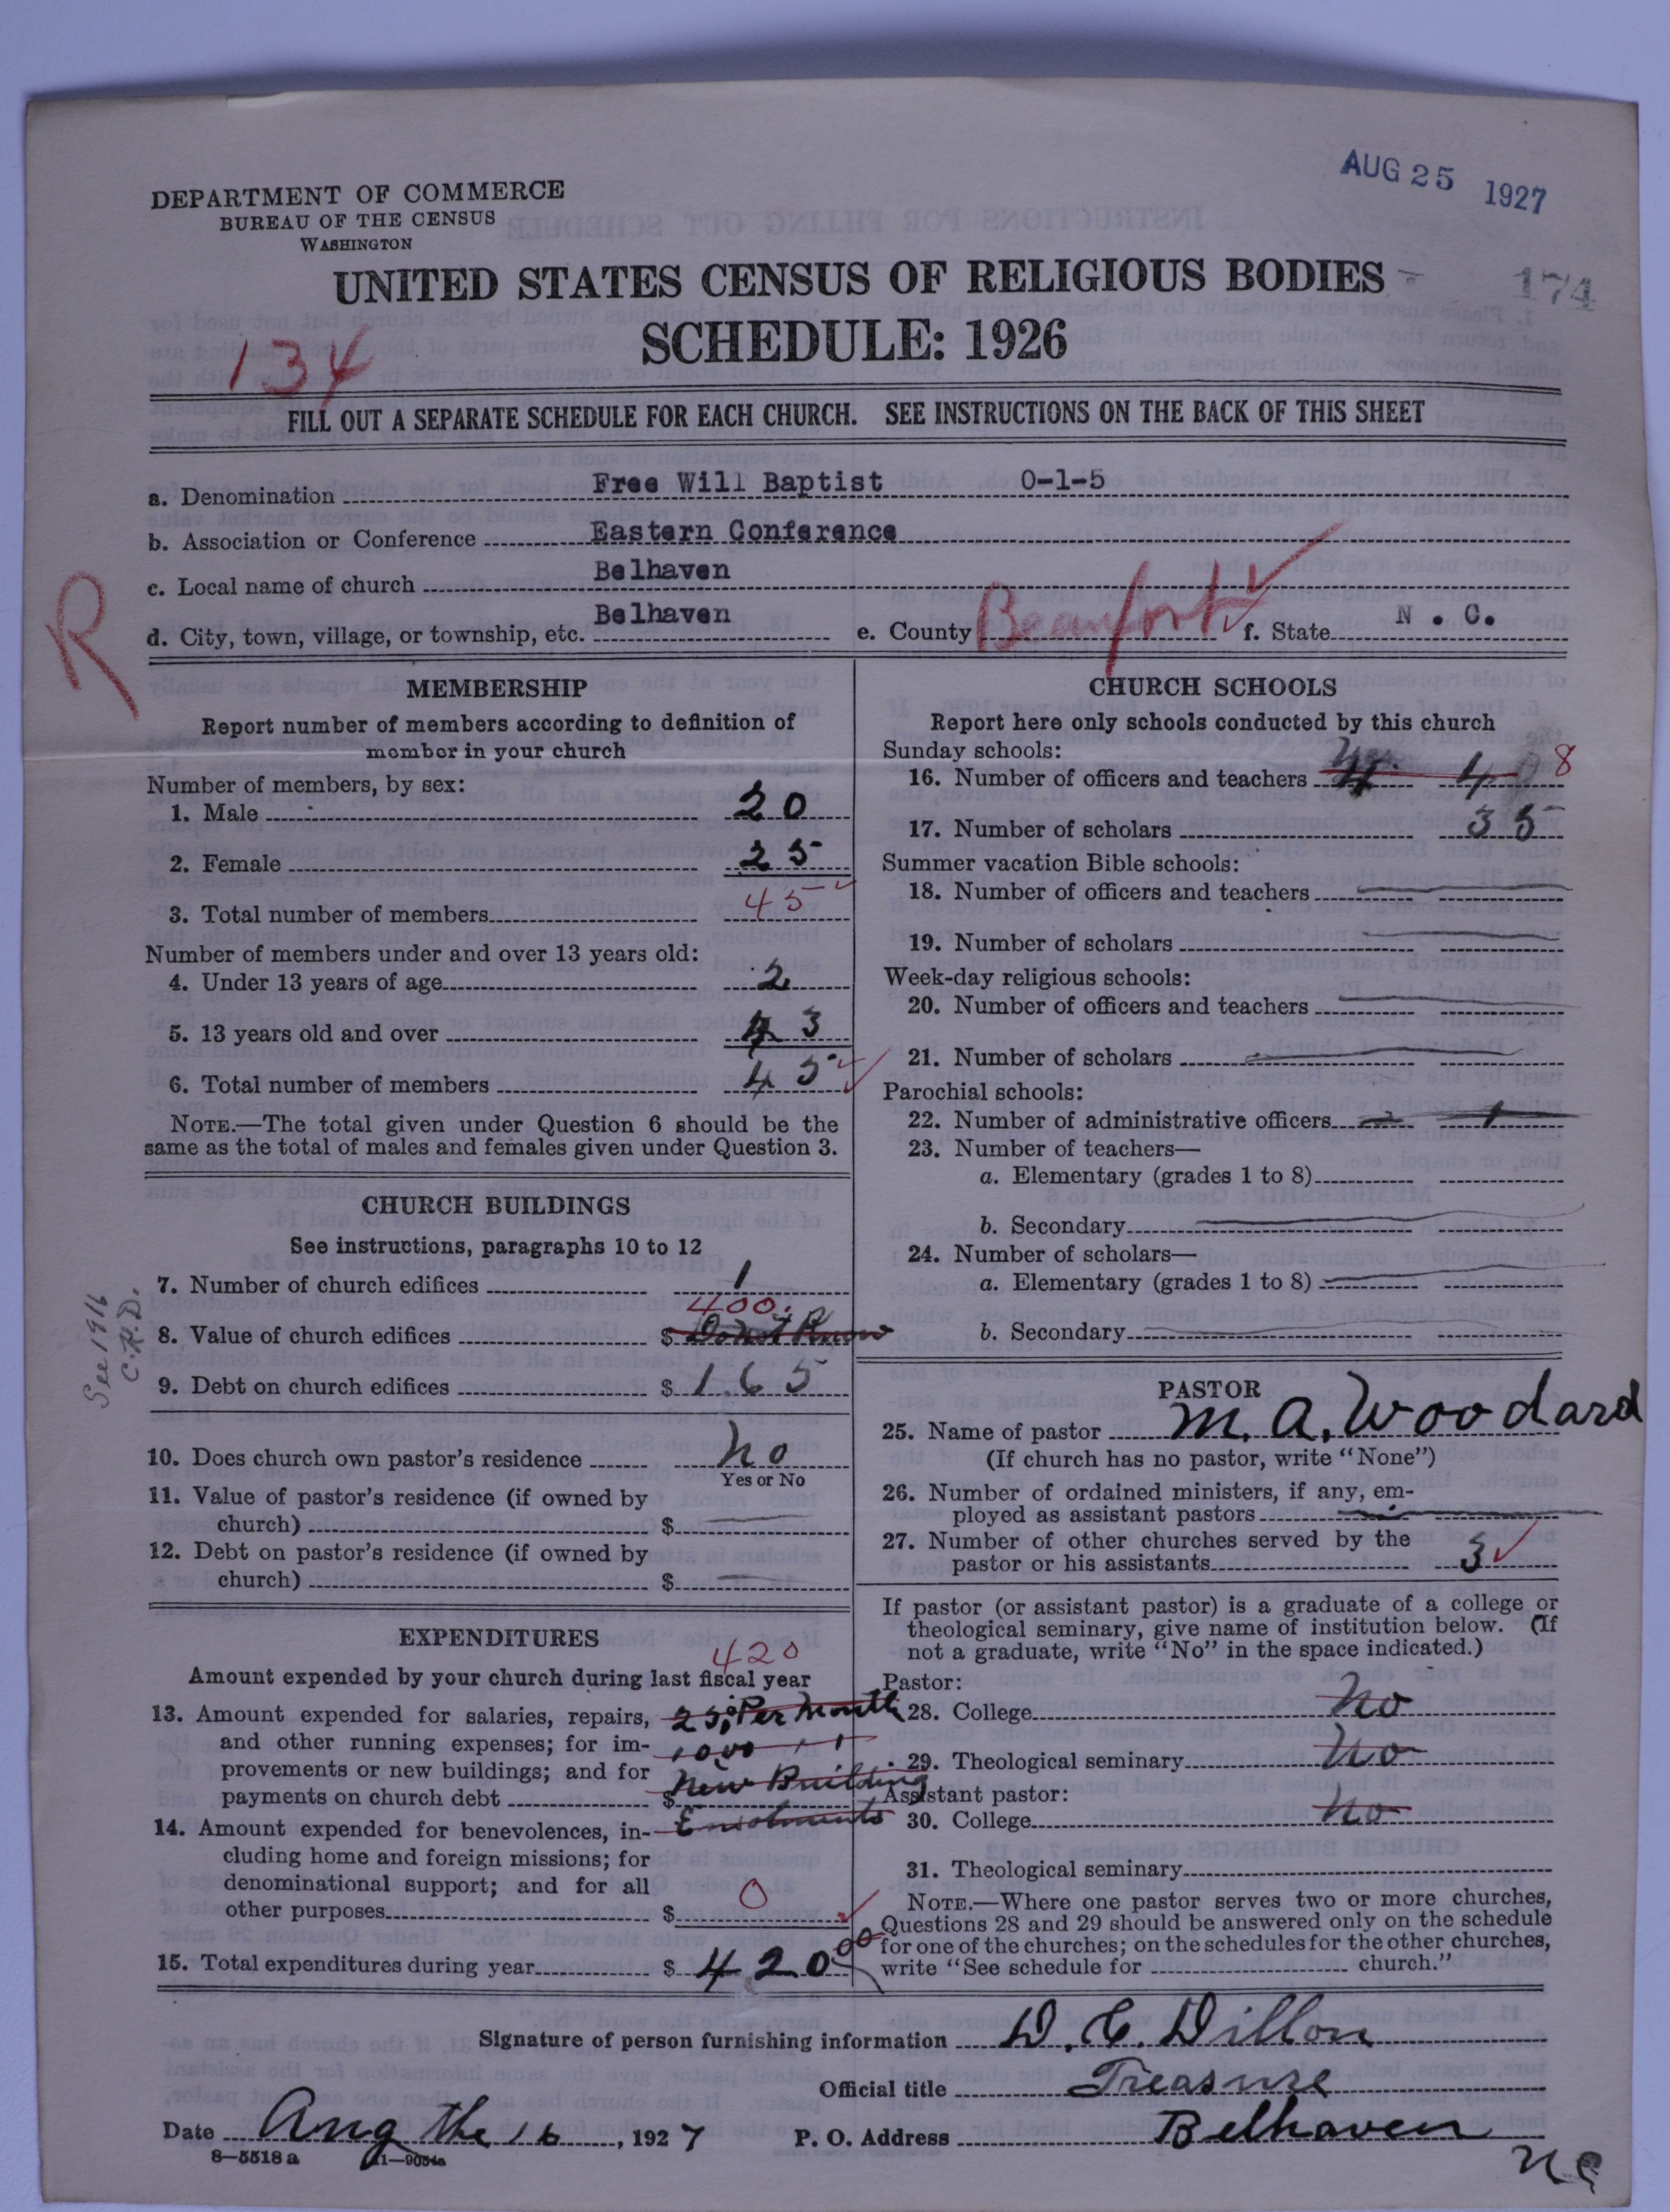 AUG 25 1927
DEPARTMENT OF COMMERCE
BUREAU OF THE CENSUS
WASHINGTON
UNITED STATES CENSUS OF RELIGIOUS BODIES
174
SCHEDULE: 1926
134
FILL OUT A SEPARATE SCHEDULE FOR EACH CHURCH. SEE INSTRUCTIONS ON THE BACK OF THIS SHEET
a. Denomination Free Will Baptist 0-1-5
b. Association or Conference Eastern Conference
c. Local name of church Belhaven
d. City, town, village, or township, etc. Belhaven e. County Beaufort f. State N. C.
R
MEMBERSHIP
Report number of members according to definition of
member in your church
Number of members, by sex:
1. Male 20
2. Female 25
3. Total number of members 45
Number of members under and over 13 years old:
4. Under 13 years of age 2
5. 13 years old and over 43
6. Total number of members 45
NOTE.—The total given under Question 6 should be the
same as the total of males and females given under Question 3.
CHURCH BUILDINGS
See instructions, paragraphs 10 to 12
7. Number of church edifices 1
400.
8. Value of church edifices $ Do not Know
9. Debt on church edifices $ 165
See 1916
C.H.D.
10. Does church own pastor's residence no
Yes or No
11. Value of pastor's residence (if owned by
church) $
12. Debt on pastor's residence (if owned by
church) $
EXPENDITURES
420
Amount expended by your church during last fiscal year
13. Amount expended for salaries, repairs, 25 Per Month
and other running expenses; for im-
provements or new buildings; and for New Building
payments on church debt $
14. Amount expended for benevolences, in-
cluding home and foreign missions; for
denominational support; and for all
other purposes $ 0
15. Total expenditures during year $ 420 00
CHURCH SCHOOLS
Report here only schools conducted by this church
Sunday schools:
16. Number of officers and teachers 4 4 8
17. Number of scholars 35
Summer vacation Bible schools:
18. Number of officers and teachers
19. Number of scholars
Week-day religious schools:
20. Number of officers and teachers
21. Number of scholars
Parochial schools:
22. Number of administrative officers 1
23. Number of teachers—
a. Elementary (grades 1 to 8)
b. Secondary
24. Number of scholars—
a. Elementary (grades 1 to 8)
b. Secondary
PASTOR
25. Name of pastor M. A. Woodard
(If church has no pastor, write "None")
26. Number of ordained ministers, if any, em-
ployed as assistant pastors
27. Number of other churches served by the
pastor or his assistants 3
If pastor (or assistant pastor) is a graduate of a college or
theological seminary, give name of institution below. (If
not a graduate, write "No" in the space indicated.)
Pastor:
28. College No
29. Theological seminary No
Assistant pastor:
30. College No
31. Theological seminary
NOTE.—Where one pastor serves two or more churches,
Questions 28 and 29 should be answered only on the schedule
for one of the churches; on the schedules for the other churches,
write "See schedule for church."
Signature of person furnishing information D. C. Dillon
Official title Treasure
Date Aug the 16, 1927 P. O. Address Belhaven
NC
8—5518 a 11—9054a